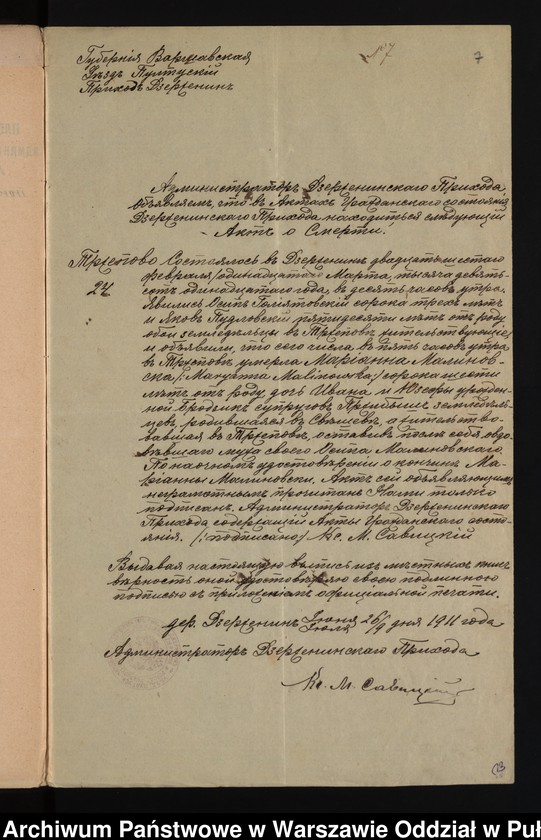 7
Губернія Варшавская
Уѣздъ Пултускій
Приходъ Дзерженинъ
Администраторъ Дзерженинскаго Прихода
объявляемъ, что въ Актахъ Гражданскаго состоянія
Дзерженинскаго Прихода находиться слѣдующій
Актъ о Смерти:
Тржепово Состоялось въ Дзерженинѣ двадцать шестаго
24 февраля /одинадцатаго Марта, тысяча девять-
сотъ одинадцатаго года, въ десять часовъ утра.
Явились Осипъ сорока трехъ лѣтъ
и Яковъ пятидесяти лѣтъ отъ роду
обои земледѣльцы въ Тржеповѣ жительствующіе,
и объявили, что сего числа въ пять часовъ утра
въ Тржеповѣ умерла Маріанна Малинов-
ска /: Maryanna Malinowska:/ сорока шести
лѣтъ отъ роду дочь Ивана и Юзефы урожден-
ной супруговъ земледѣль-
цевъ, родившаяся въ а жительство-
вавшая въ Тржеповѣ, оставивъ послѣ себя овдо-
вѣвшаго мужа своего Осипа Малиновскаго.
По наочномъ удостовѣреніи о кончинѣ Ма-
ріанны Малиновски. Актъ сей объявляющимъ
неграмотнымъ прочитанъ Нами только
подписанъ. Администраторъ Дзерженинскаго
Прихода содержащій Акты Гражданскаго состо-
янія. /:подписано:/ Кс. М. Савицкій
Выдавая настоящую выпись изъ мѣстныхъ книгъ
вѣрность оной удостовѣряю своею подлинною
подписью съ приложеніемъ официальной печати.
дер. Дзерженинъ Іюня/Іюля 26/9 дня 1911 года
Администраторъ Дзерженинскаго Прихода
Кс. М. Савицкій
Archiwum Państwowe w Warszawie Oddział w Puł